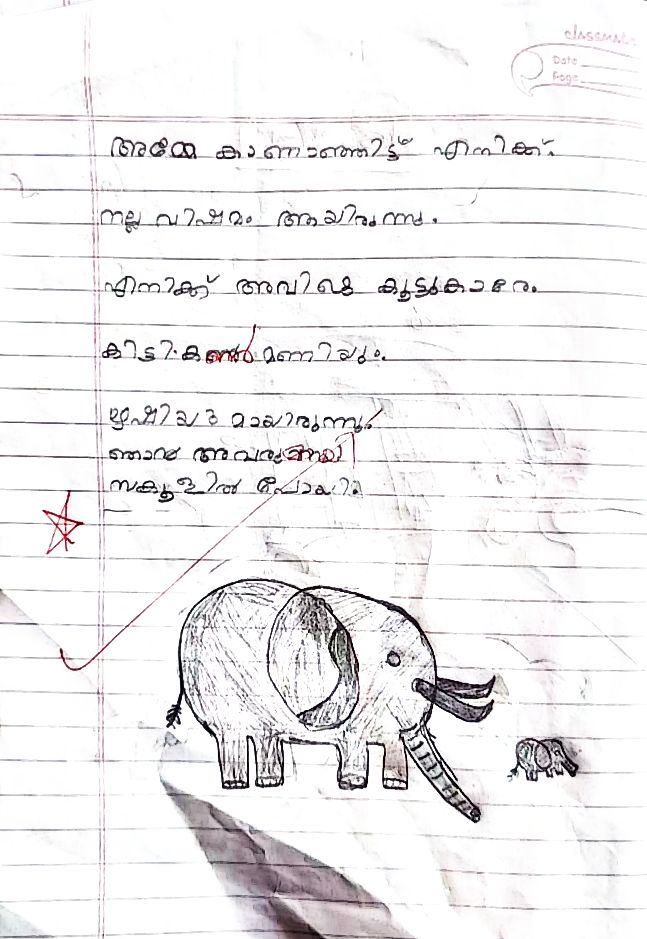 classmate
Date
Page
അമ്മേ കാണാഞ്ഞിട്ട് എനിക്ക്.
നല്ല വിഷമം ആയിരുന്നു.
എനിക്ക് അവിടെ കൂട്ടുകാരെ.
കിട്ടി. കൺ മണിയും.
ഋഷിയു മായിരുന്നു.
ഞാൻ അവരുമായി
സകൂളിൽ പോയി